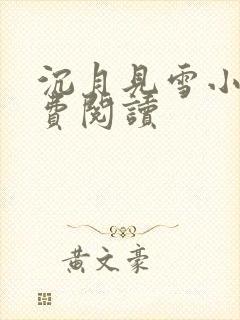 沉月見雪小
費閱讀
黃文豪